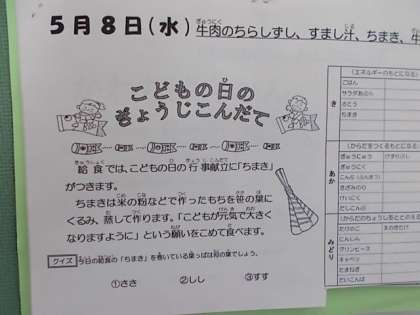 5月8日(水)
牛肉のちらしずし、すまし汁、ちまき、牛
こどもの日の
ぎょうじこんだて
給食では、こどもの日の行事献立に「ちまき」
がつきます。
ちまきは米の粉などで作ったもちを笹の葉に
くるみ、蒸して作ります。「こどもが元気で大きく
なりますように」という願いをこめて食べます。
クイズ 今日の給食の「ちまき」を巻いている葉っぱは何の葉でしょう。
①ささ ②しし ③すす
(エネルギーのもとになる)
き
ごはん
サラダあぶら
さとう
ちまき
(からだをつくるもとになる)
あか
ぎゅうにゅう
ぎゅうにく
こんぶ
きざみのり
けいにく
だしこんぶ
(からだのちょうしをととのえる)
みどり
たけのこ
にんじん
グリンピース
キャベツ
たまねぎ
だいこんば